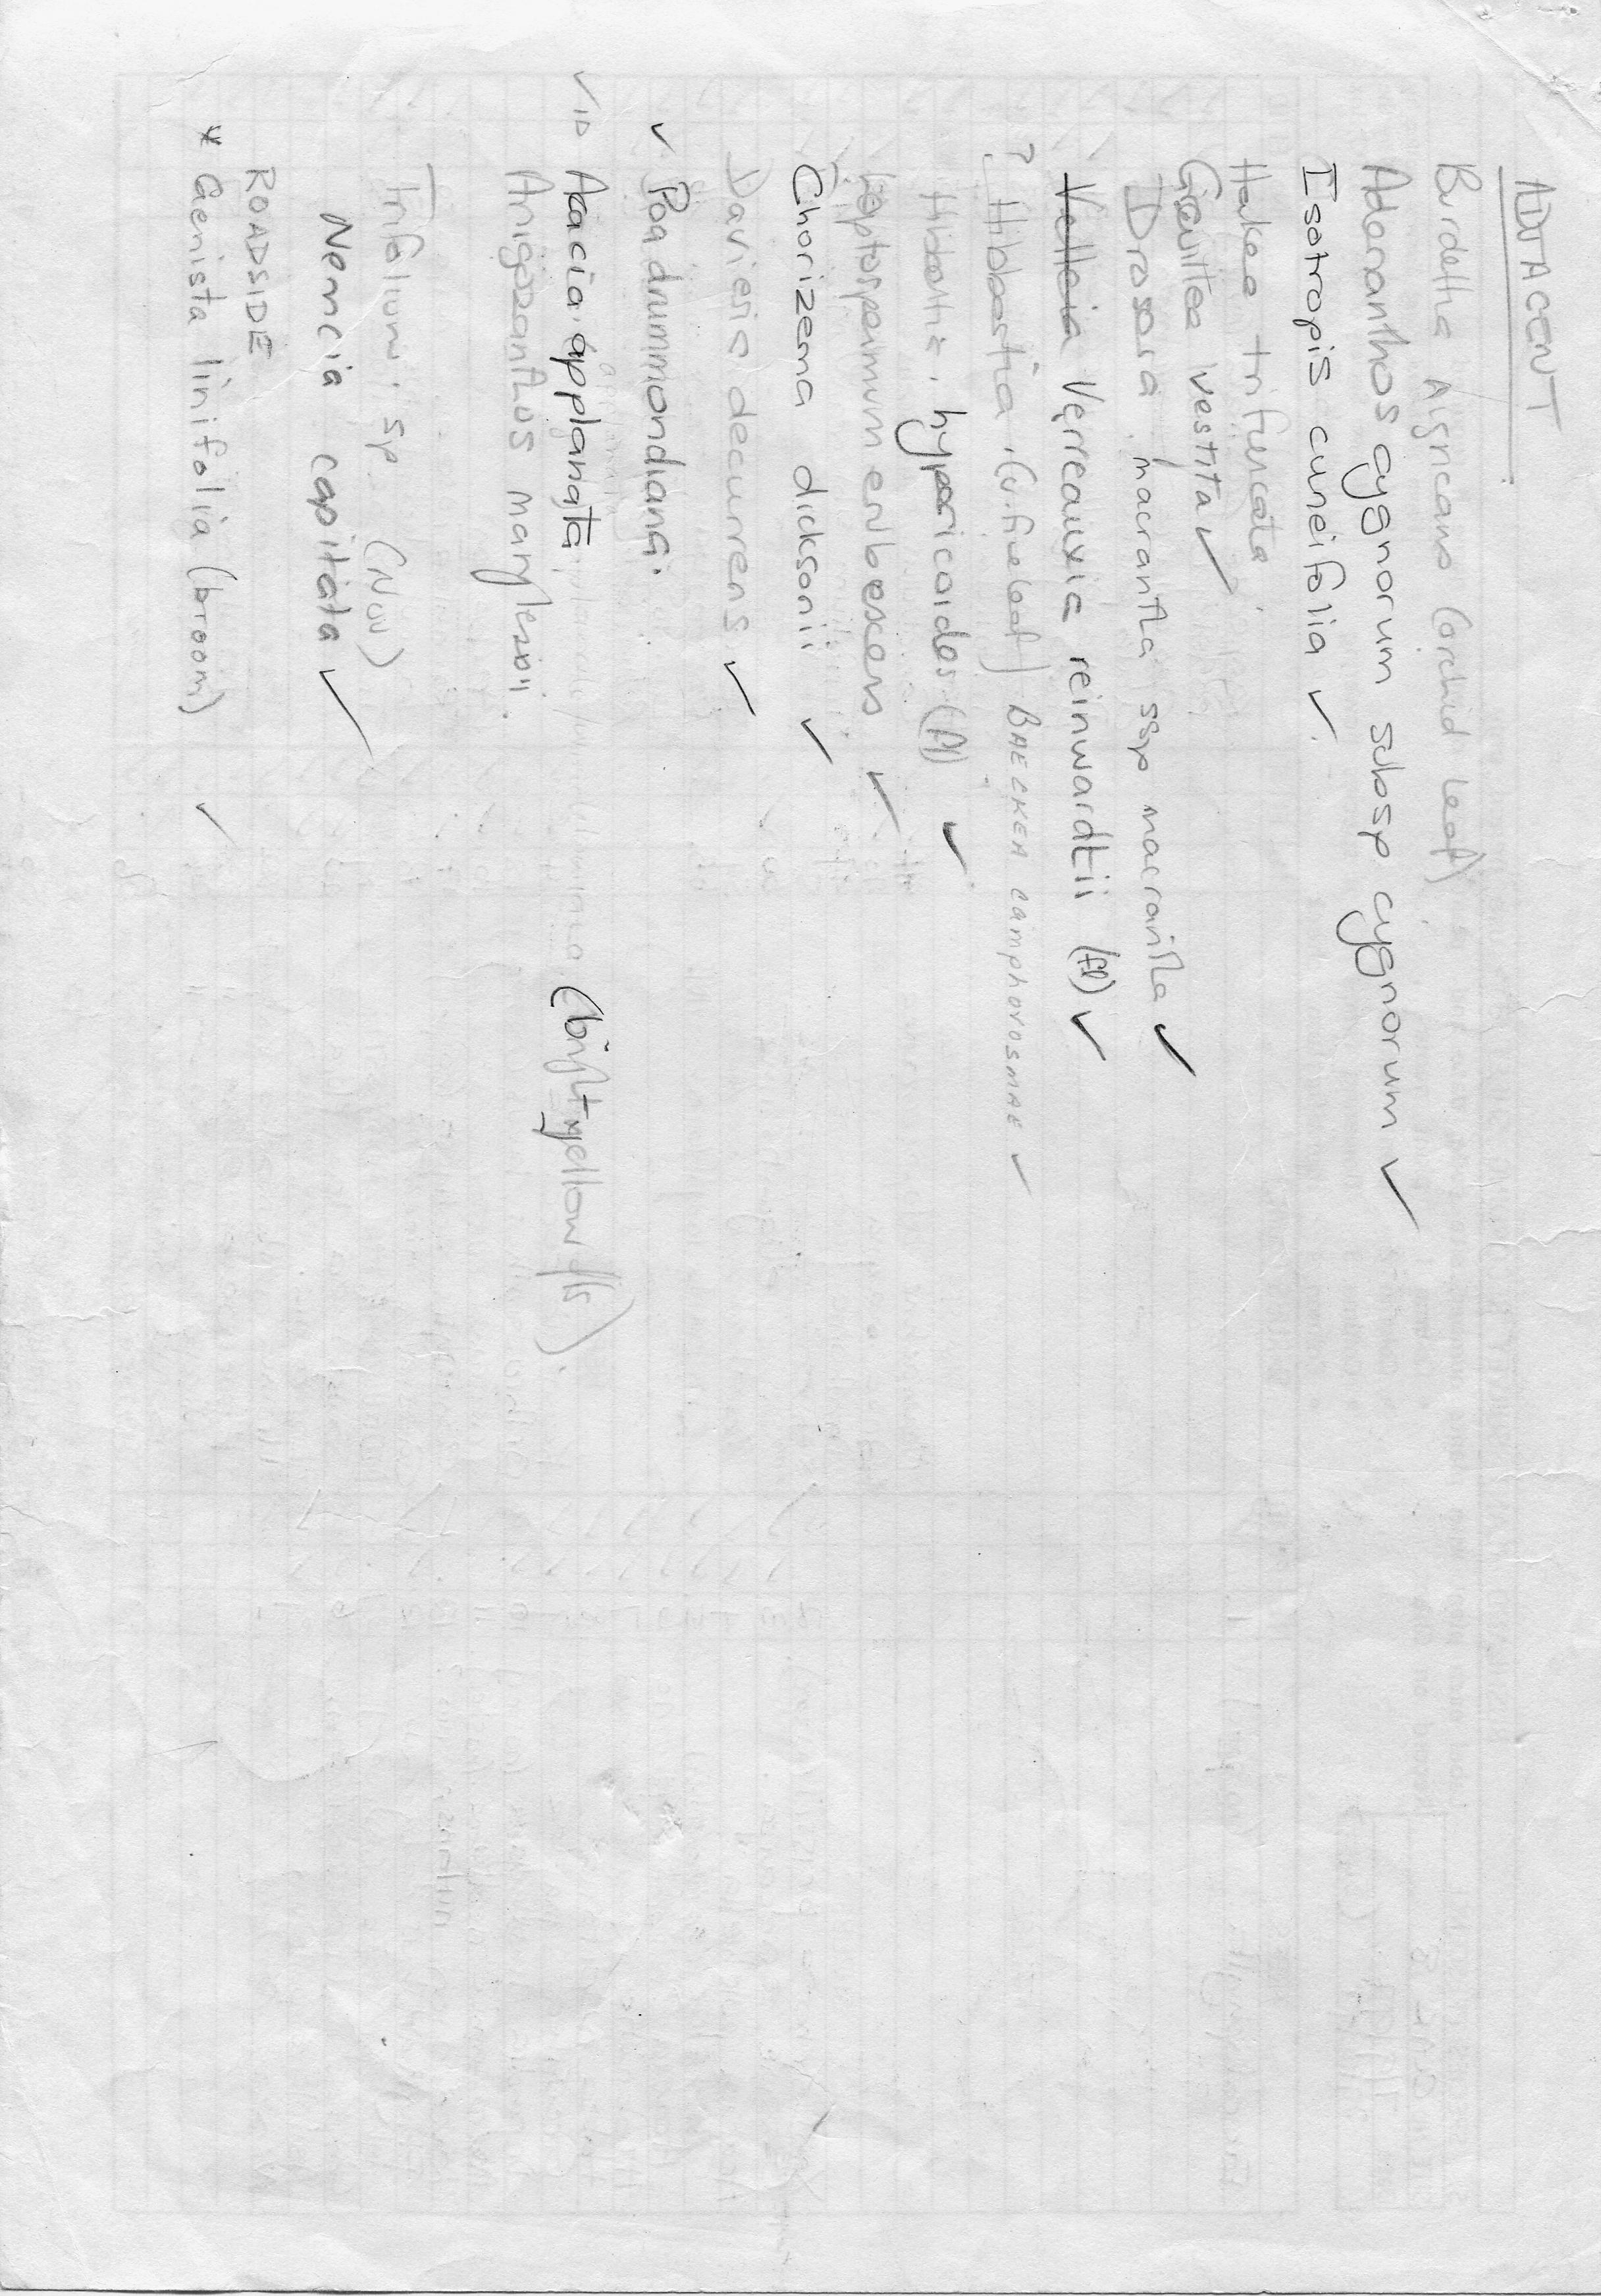 ADJACENT
Burdettia Nigricans (orchid leaf)
Adenanthos cygnorum subsp cygnorum ✓
Isotropis cuneifolia ✓
Hakea trifurcata
Grevillea vestita ✓
Drosera macrantha ssp macrantha ✓
Velleia Verreauxia reinwardtii (FP) ✓
? Hibbertia (v. fine leaf) BAECKEA camphorosmae ✓
Hibbertia hypericoides (A) ✓
Leptospermum erubescens ✓
Chorizema dicksonii ✓
Daviesia decurrens ✓
✓ Poa drummondiana
✓ ID Acacia applanata (bright yellow fls).
Anigozanthos manglesii
Trifolium sp. (NOU)
Nemcia capitata ✓
ROADSIDE
* Genista linifolia (broom) ✓